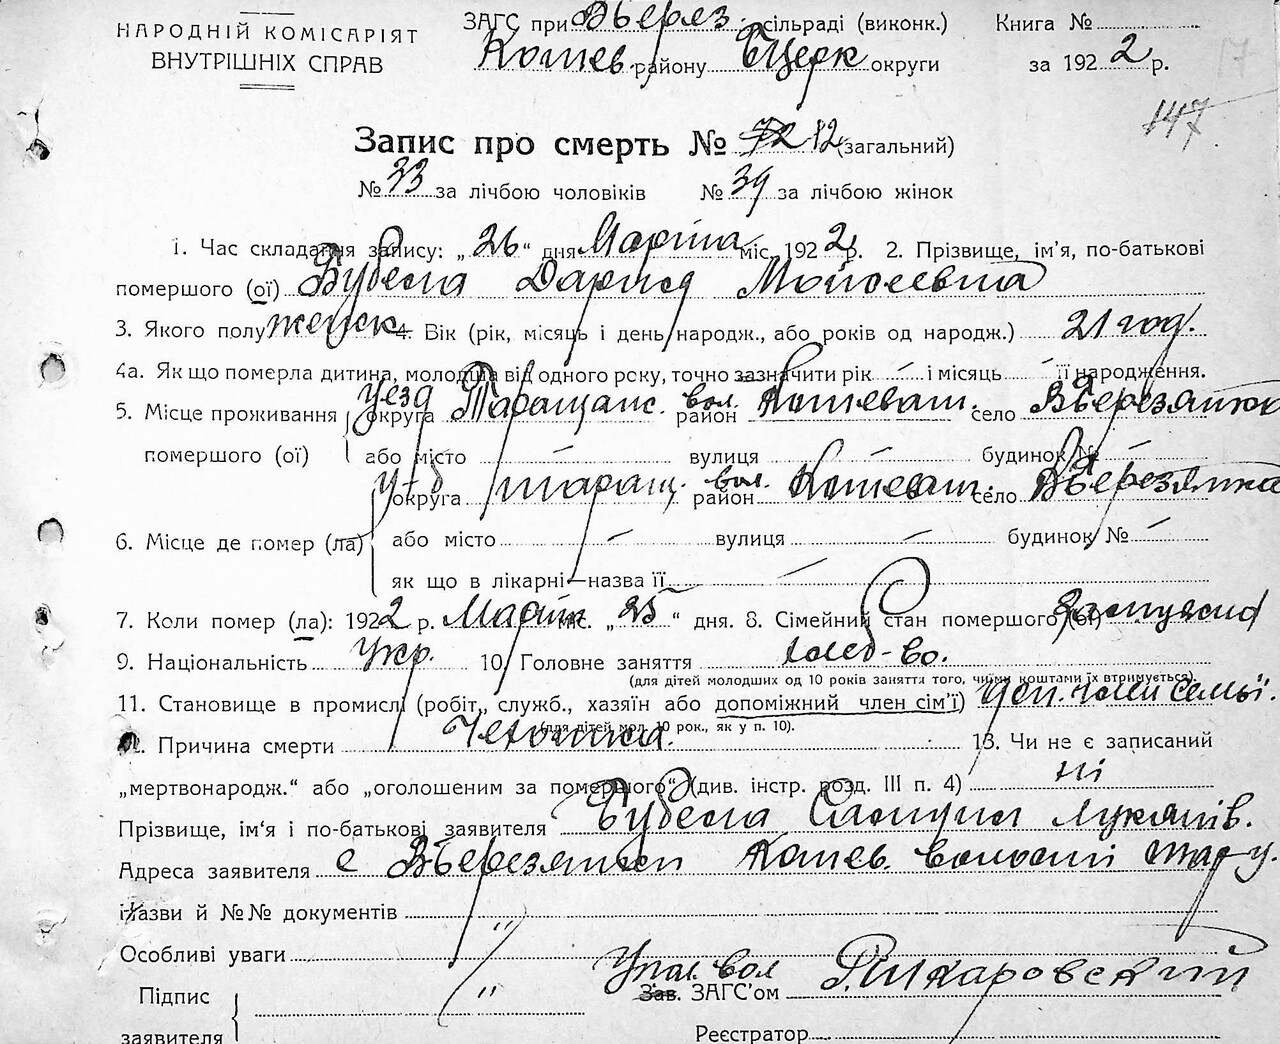 НАРОДНІЙ КОМІСАРІЯТ
ВНУТРІШНІХ СПРАВ
ЗАГС при В.Берез. сільраді (виконк.)
Кошев. району Б.Церк округи
Книга №
за 1922 р.
147
Запис про смерть № 72 12 (загальний)
№ 33 за лічбою чоловіків № 39 за лічбою жінок
1. Час складання запису: „26“ дня Марта міс. 1922 р. 2. Прізвище, ім'я, по-батькові
помершого (ої) Бубела Дарія Мойсеевна
3. Якого полу женск 4. Вік (рік, місяць і день народж., або років од народж.) 21 год.
4а. Як що померла дитина, молодша від одного року, точно зазначити рік — і місяць — її народження.
5. Місце проживання помершого (ої) уезд округа Таращанс. вол. район Кошеват. село В.Березянка
або місто — вулиця — будинок № —
6. Місце де помер (ла) у-д округа Таращ. вол. район Кошеват. село В.Березянка
або місто — вулиця — будинок № —
як що в лікарні—назва її —
7. Коли помер (ла): 1922 р. Марта міс. „25“ дня. 8. Сімейний стан помершого (ої) Замужня
9. Національність Укр. 10. Головне заняття хлеб-во.
(для дітей молодших од 10 років заняття того, чиїми коштами їх втримується).
11. Становище в промислі (робіт., служб., хазяїн або допоміжний член сім'ї) доп. член семьї.
(для дітей мол. 10 рок., як у п. 10).
12. Причина смерти Чехотка. 13. Чи не є записаний
„мертвонародж.“ або „оголошеним за помершого“ (див. інстр. розд. III п. 4) ні
Прізвище, ім'я і по-батькові заявителя Бубела Самуил Лукянів.
Адреса заявителя с В.Березянки Кошев. волості Тар у.
Назви й №№ документів "
Особливі уваги
Підпис заявителя " Упол. вол Зав. ЗАГС'ом
Реєстратор